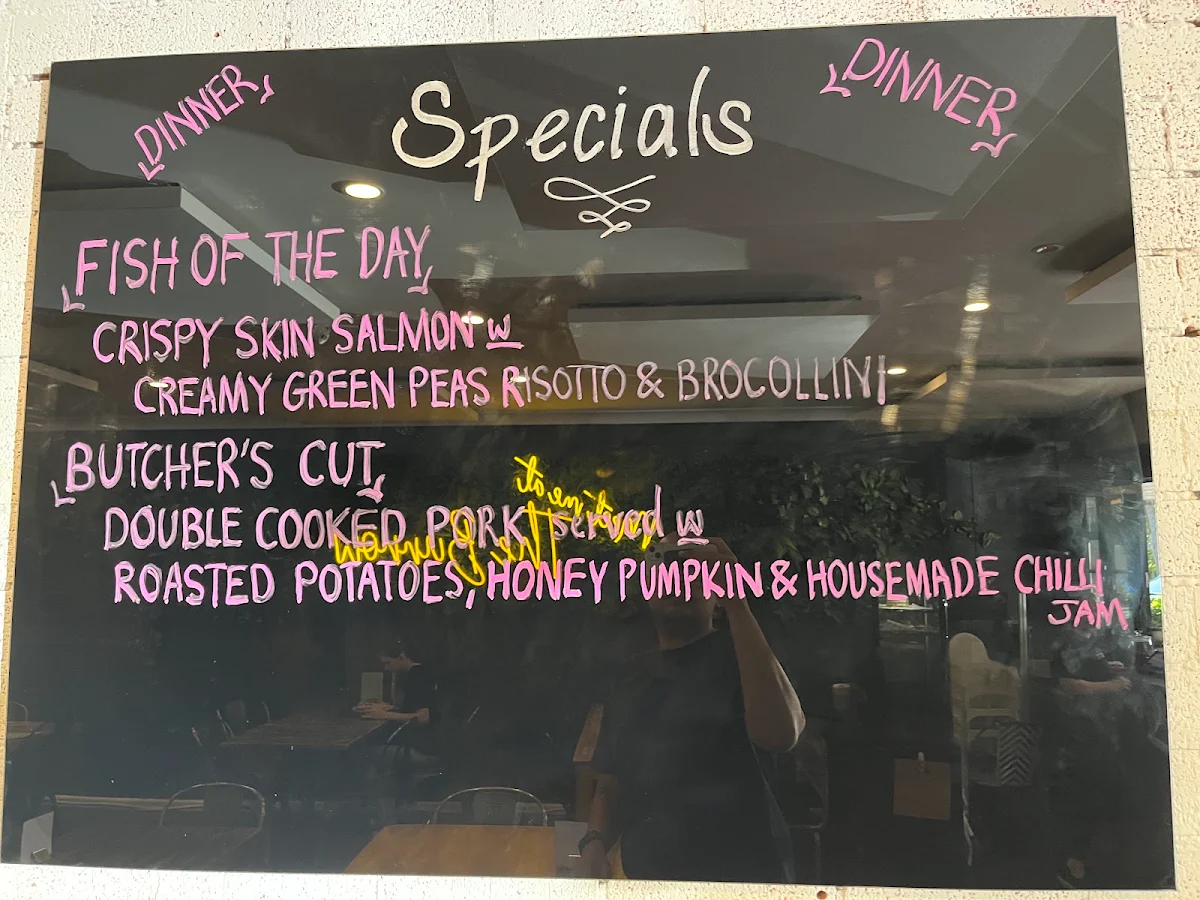 DINNER
Specials
DINNER
FISH OF THE DAY
CRISPY SKIN SALMON w
CREAMY GREEN PEAS RISOTTO & BROCOLLINI
BUTCHER'S CUT
DOUBLE COOKED PORK served w
ROASTED POTATOES, HONEY PUMPKIN & HOUSEMADE CHILLI
JAM